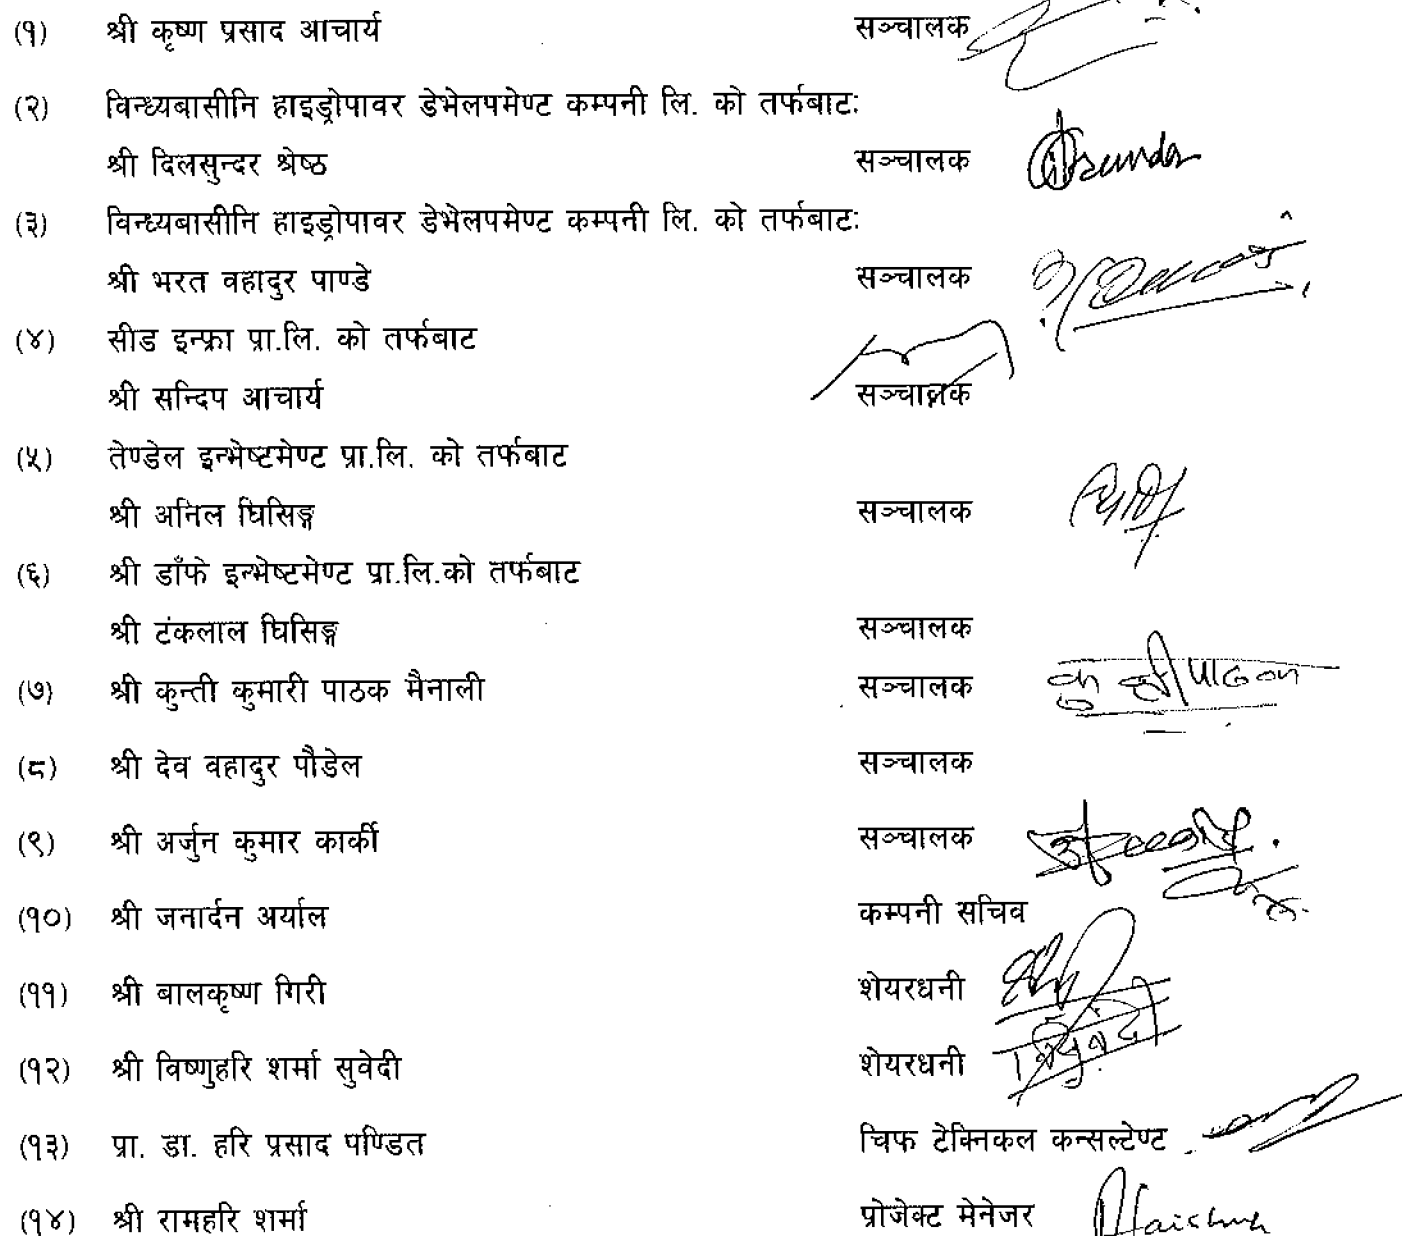 (१) श्री कृष्ण प्रसाद आचार्य सञ्चालक
(२) विन्ध्यबासीनि हाइड्रोपावर डेभेलपमेण्ट कम्पनी लि. को तर्फबाट:
श्री दिलसुन्दर श्रेष्ठ सञ्चालक
(३) विन्ध्यबासीनि हाइड्रोपावर डेभेलपमेण्ट कम्पनी लि. को तर्फबाट:
श्री भरत वहादुर पाण्डे सञ्चालक
(४) सीड इन्फ्रा प्रा.लि. को तर्फबाट
श्री सन्दिप आचार्य सञ्चालक
(५) तेण्डेल इन्भेष्टमेण्ट प्रा.लि. को तर्फबाट
श्री अनिल घिसिङ्ग सञ्चालक
(६) श्री डाँफे इन्भेष्टमेण्ट प्रा.लि.को तर्फबाट
श्री टंकलाल घिसिङ्ग सञ्चालक
(७) श्री कुन्ती कुमारी पाठक मैनाली सञ्चालक
(८) श्री देव वहादुर पौडेल सञ्चालक
(९) श्री अर्जुन कुमार कार्की सञ्चालक
(१०) श्री जनार्दन अर्याल कम्पनी सचिव
(११) श्री बालकृष्ण गिरी शेयरधनी
(१२) श्री विष्णुहरि शर्मा सुवेदी शेयरधनी
(१३) प्रा. डा. हरि प्रसाद पण्डित चिफ टेक्निकल कन्सल्टेण्ट
(१४) श्री रामहरि शर्मा प्रोजेक्ट मेनेजर